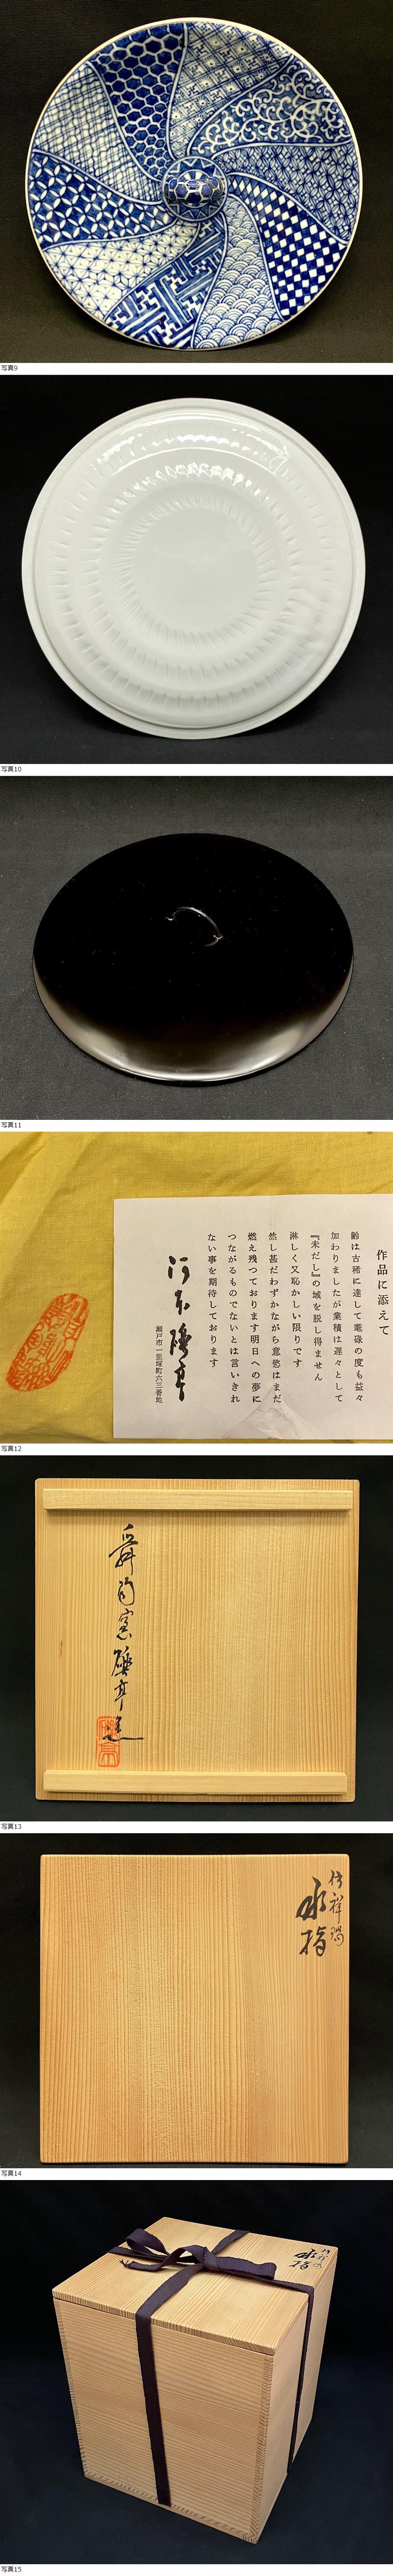 写真9
写真10
写真11
作品に添えて
齢は古稀に達して耄碌の度も益々
加わりましたが業積は遅々として
『未だし』の域を脱し得ません
淋しく又恥かしい限りです
然し甚だわずかながら意慾はまだ
燃え残っております明日への夢に
つながるものでないとは言いきれ
ない事を期待しております
河本礫亭
瀬戸市一里塚町六三番地
写真12
舜陶窯礫亭造
写真13
祥瑞
水指
写真14
祥瑞
水指
写真15